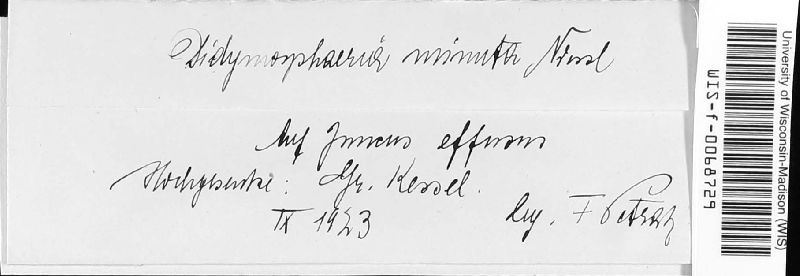 Didymosphaeria minuta Niessl
Auf Juncus effusus
Hochgesenke: Gr. Kessel.
IX 1923 leg. F Petrak
University of Wisconsin-Madison (WIS)
WIS-f-0068729